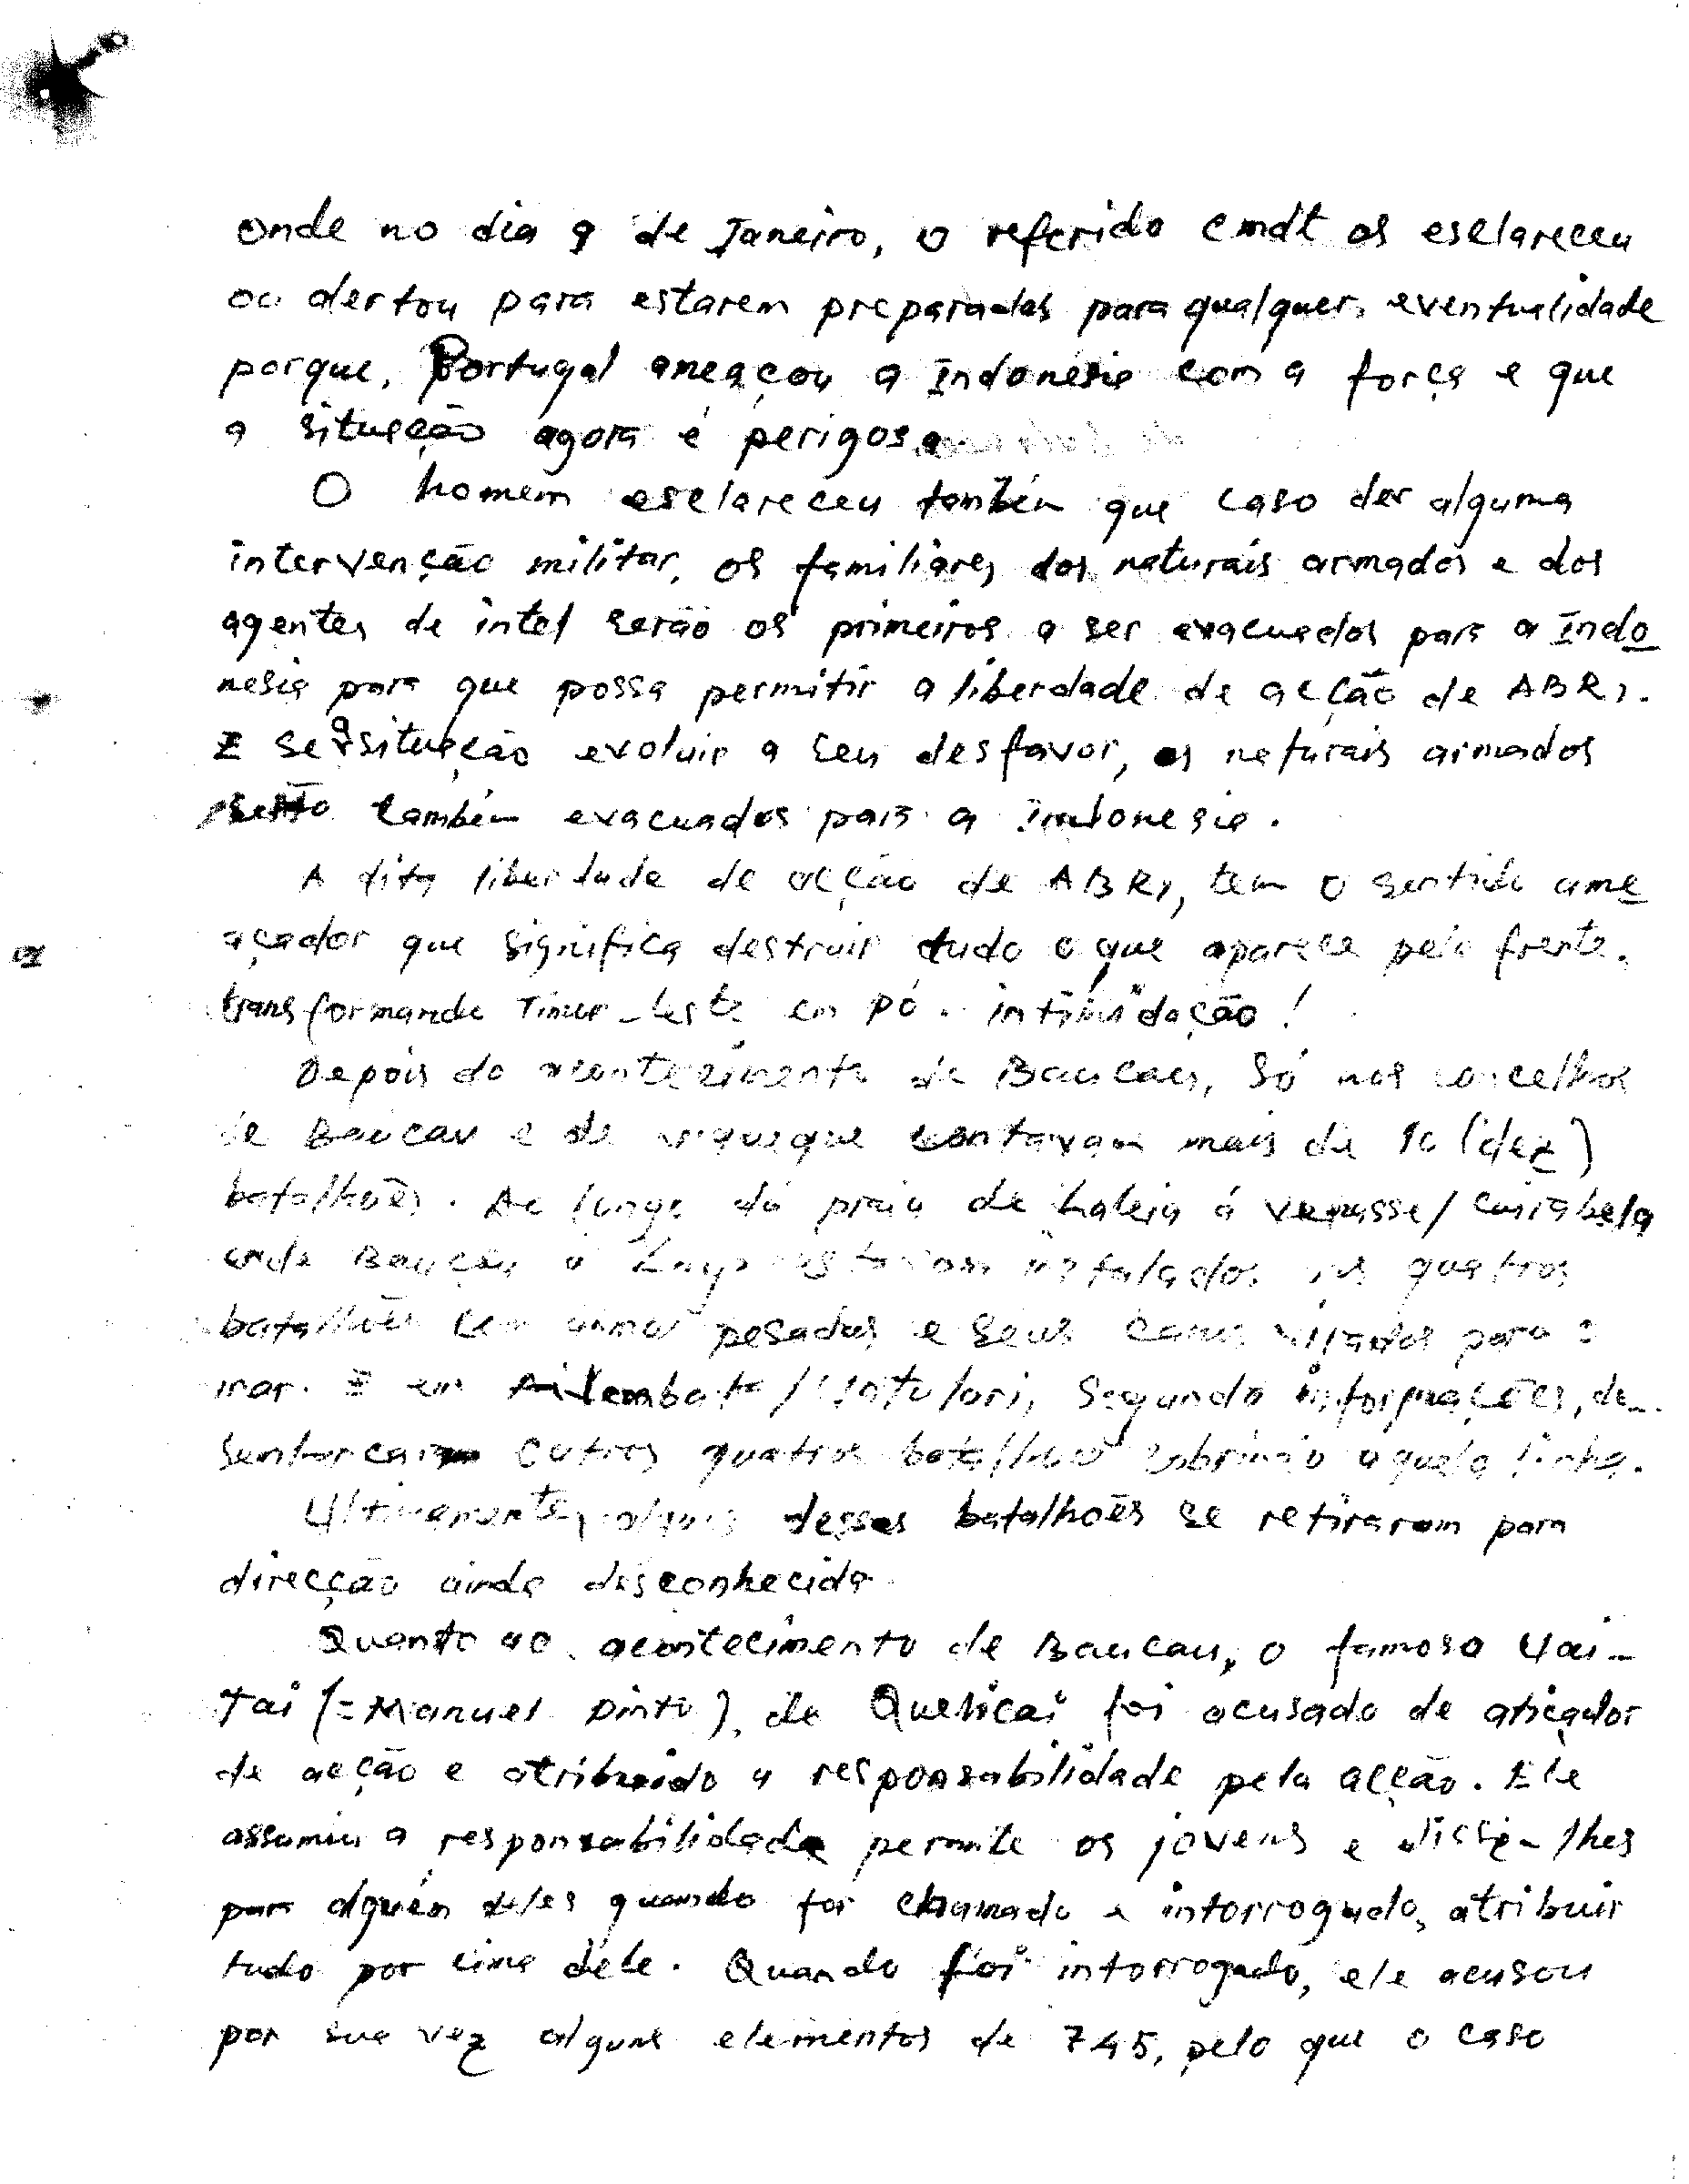 onde no dia 9 de Janeiro, o referido cmdt os esclareceu
ou alertou para estarem preparados para qualquer eventualidade
porque, Portugal ameaçou a Indonésia com a força e que
a situação agora é perigosa
O homem esclareceu também que caso der alguma
intervenção militar, os familiares dos naturais armados e dos
agentes de intel serão os primeiros a ser evacuados para a Indo
nesia para que possa permitir a liberdade de acção de ABRI.
E se a situação evoluir a seu desfavor, os naturais armados
serão também evacuados para a Indonesia.
A dita liberdade de acção de ABRI, tem o sentido ame
açador que significa destruir tudo o que aparece pela frente,
transformando Timor-Leste em pó. intimidação!
Depois do acontecimento de Baucau, só nos concelhos
de Baucau e de Viqueque contavam mais de 10 (dez)
batalhões. Ao longo da praia de Laleia á Vemasse/
Baucau a Laga estavam instalados os quatros
batalhões com armas pesadas e seus canos virados para o
mar. E em /Uatulari, Segundo informações, de-
sembarcaram outros quatros batalhões cobrindo aquela linha.
Ultimamente, alguns desses batalhões se retiraram para
direcção ainda desconhecida
Quanto ao acontecimento de Baucau, o famoso Uai-
Tai (=Manuel Pinto), de Quelicai foi acusado de atiçador
de acção e atribuido a responsabilidade pela acção. Ele
assumiu a responsabilidade os jovens e disse-lhes
para alguém deles quando for chamado e intorrogado, atribuir
tudo por cima dele. Quando foi intorrogado, ele acusou
por sua vez alguns elementos de 745, pelo que o caso